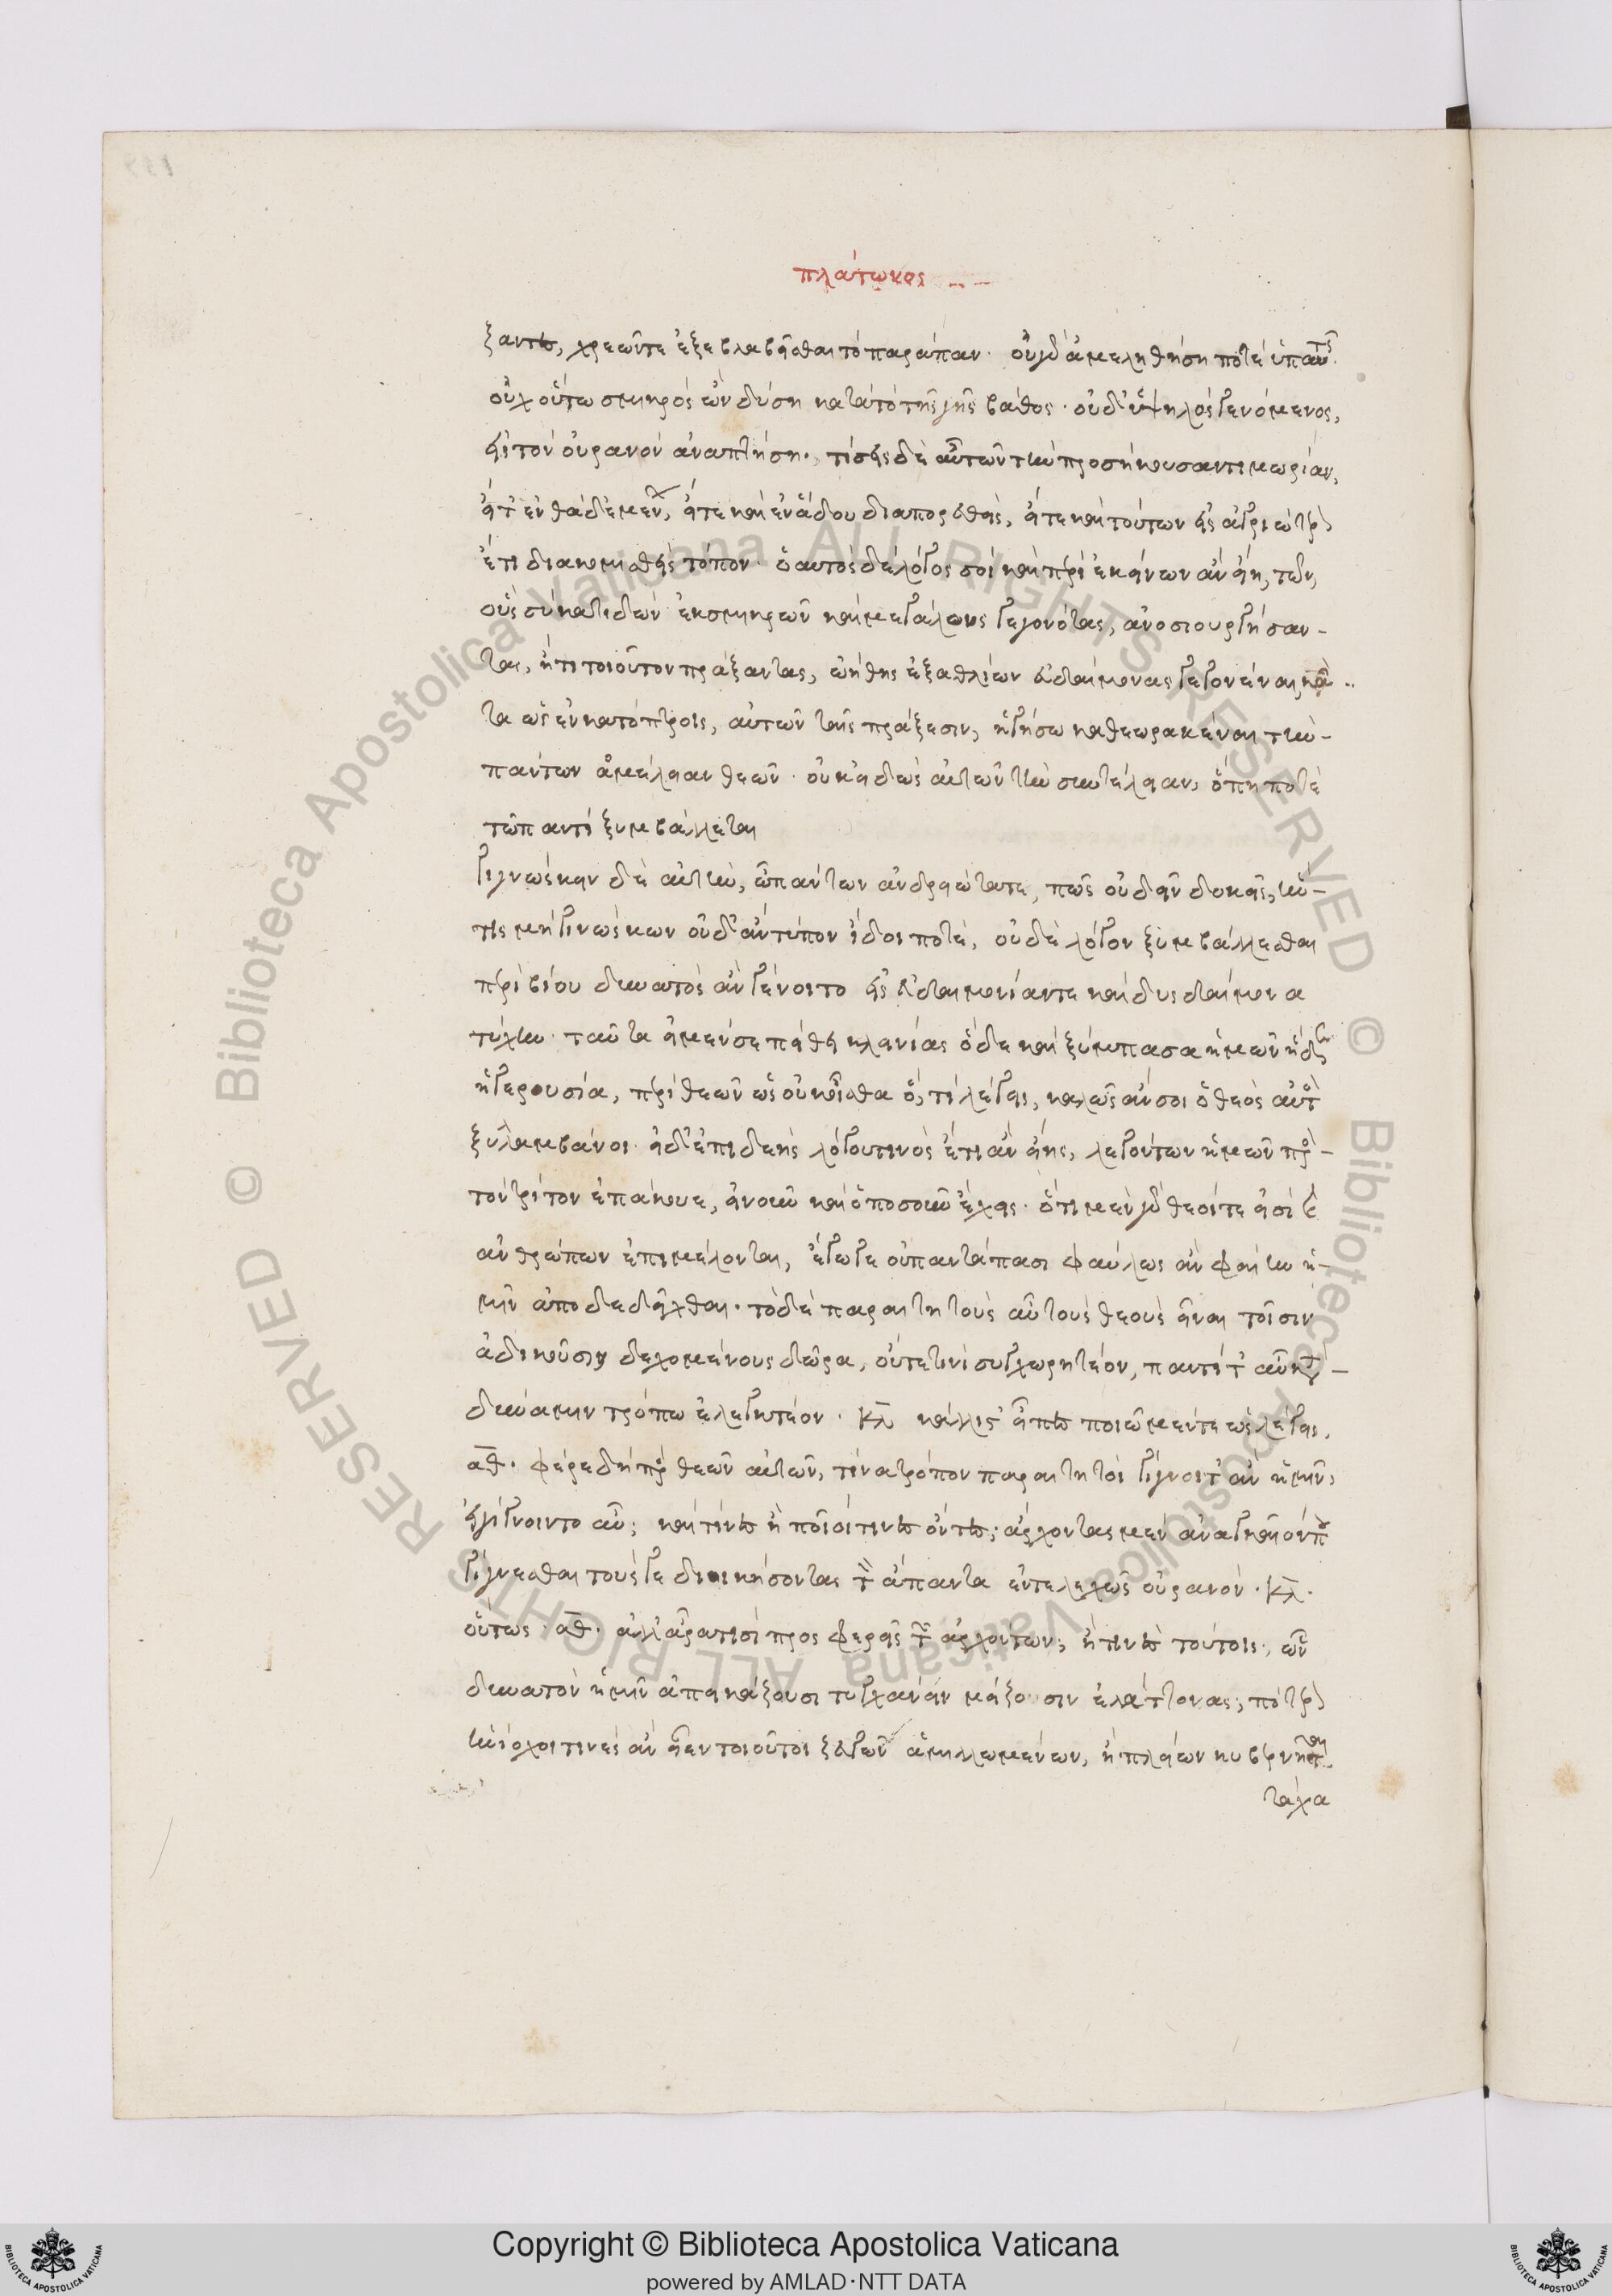 πλάτωνος
ξαντες, χρεών τε ἐξευλαβεῖσθαι τὸ παράπαν. οὐ γὰρ ἀμεληθήσῃ ποτὲ ὑπ' αὐτῆς
οὐχ οὕτω σμικρὸς ὢν δύσῃ κατὰ τὸ τῆς γῆς βάθος. οὐδ' ὑψηλὸς γενόμενος,
εἰς τὸν οὐρανὸν ἀναπτήσῃ. τίσεις δὲ αὐτῶν τὴν προσήκουσαν τιμωρίαν,
εἴτ' ἐνθάδε μένων, εἴτε καὶ ἐν ἅδου διαπορευθεὶς, εἴτε καὶ τούτων εἰς ἀγριώτερον
ἔτι διακομισθεὶς τόπον. ὁ αὐτὸς δὲ λόγος σοι καὶ περὶ ἐκείνων ἂν εἴη, τῶν,
οὓς σὺ κατιδὼν ἐκ σμικρῶν καὶ μεγάλους γεγονότας, ἀνοσιουργήσαν-
τας, ἤ τι τοιοῦτον πράξαντας, ᾠήθης ἐξ ἀθλίων εὐδαίμονας γεγονέναι, κᾆ-
τα ὡς ἐν κατόπτροις, αὐτῶν ταῖς πράξεσιν, ἡγήσω καθεωρακέναι τὴν
πάντων ἀμέλειαν θεῶν. οὐκ εἰδὼς αὐτῶν τὴν συντέλειαν, ὅπη ποτὲ
τῷ παντὶ ξυμβάλλεται
γιγνώσκειν δὲ αὐτὴν, ὦ πάντων ἀνδρειότατε, πῶς οὐ δεῖν δοκεῖς, ἥν
τις μὴ γινώσκων οὐδ' ἂν τύπον ἴδοι ποτὲ, οὐδὲ λόγον ξυμβάλλεσθαι
περὶ βίου δυνατὸς ἂν γένοιτο εἰς εὐδαιμονίαν τε καὶ δυσδαίμονα
τύχην. ταῦτα εἰ μέν σε πείθει κλεινίας ὅδε καὶ ξύμπασα ἡμῶν ἥδε
ἡ γερουσία, περὶ θεῶν ὡς οὐκ οἶσθα ὅ, τι λέγεις, καλῶς ἄν σοι ὁ θεὸς αὐτὸς
ξυλλαμβάνοι. εἰ δ' ἐπιδεὴς λόγου τινὸς ἔτι ἂν εἴης, λεγόντων ἡμῶν πρὸς
τὸν τρίτον ἐπάκουε, εἰ νοῦν καὶ ὁποσονοῦν ἔχεις. ὅτι μὲν γὰρ θεοί τε εἰσὶ καὶ
ἀνθρώπων ἐπιμέλονται, ἔγωγε οὐ παντάπασι φαύλως ἂν φαίην ἡ-
μῖν ἀποδεδεῖχθαι. τὸ δὲ παραιτητοὺς αὖ τοὺς θεοὺς εἶναι τοῖσιν
ἀδικοῦσιν δεχομένους δῶρα, οὔτε τινὶ συγχωρητέον, παντί τ' αὖ κατὰ
δύναμιν τρόπῳ ἐλεγκτέον. κλ κάλλιστ' εἶπες ποιῶμέν τε ὡς λέγεις.
αθ. φέρε δὴ πρὸς θεῶν αὐτῶν, τίνα τρόπον παραιτητοὶ γίγνοιντ' ἂν ἡμῖν,
εἰ γίγνοιντο αὖ; καὶ τίνες ἢ ποῖοί τινες ὄντες; ἄρχοντας μὲν ἀναγκαῖόν που
γίγνεσθαι τούς γε διοικήσοντας τὸν ἅπαντα ἐντελεχῶς οὐρανόν. κλ.
οὕτως. αθ. ἀλλ' ἆρα τίσι προσφερεῖς τῶν ἀρχόντων; ἢ τίνες τούτοις, ὧν
δυνατὸν ἡμῖν ἀπεικάζουσι τυγχάνειν μείζοσιν ἐλάττονας; πότερον
ἡνίοχοί τινες ἂν εἶεν τοιοῦτοι ζευγῶν ἁμιλλωμένων, ἢ πλοίων κυβερνῆται
τάχα